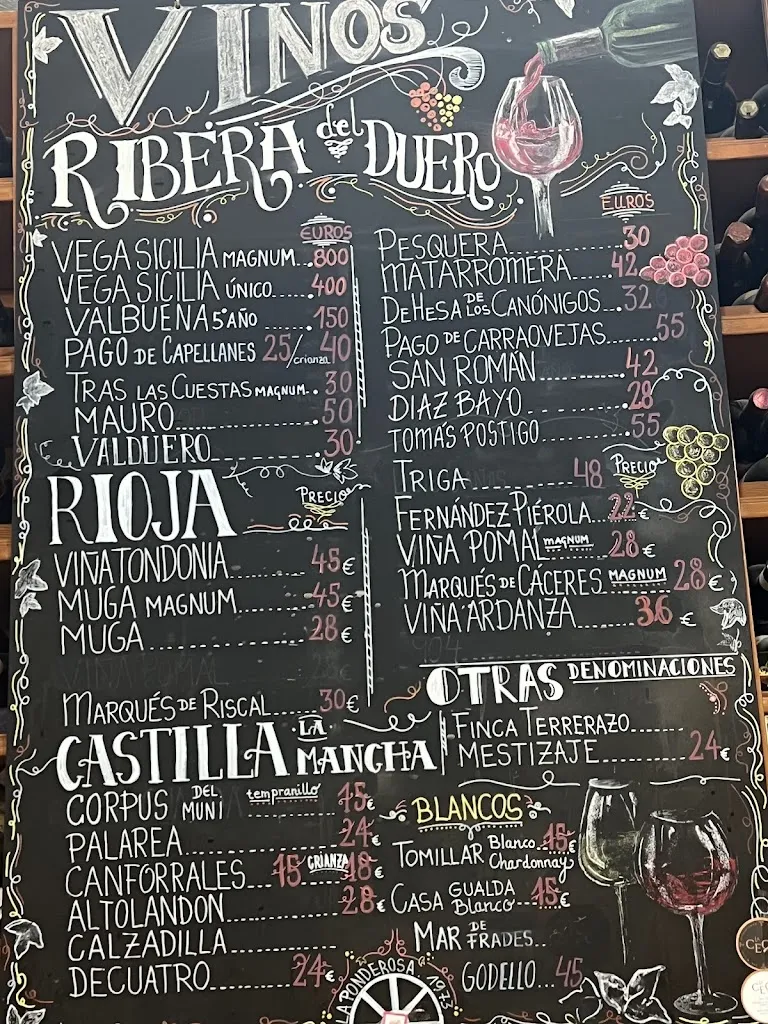 VINOS
RIBERA del DUERO
EUROS
VEGA SICILIA MAGNUM...800
VEGA SICILIA ÚNICO.....400
VALBUENA 5º AÑO.....150
PAGO DE CAPELLANES 25/crianza 40
TRAS LAS CUESTAS MAGNUM..30
MAURO.....50
VALDUERO.....30
EUROS
PESQUERA.....30
MATARROMERA.....42
DEHESA DE LOS CANÓNIGOS...32
PAGO DE CARRAOVEJAS.....55
SAN ROMÁN.....42
DIAZ BAYO.....28
TOMÁS POSTIGO.....55
RIOJA
PRECIO
VIÑA TONDONIA.....45€
MUGA MAGNUM.....45€
MUGA.....28€
VIÑA POMAL
MARQUÉS DE RISCAL.....30€
TRIGA.....48 PRECIO
FERNÁNDEZ PIÉROLA...22€
VIÑA POMAL MAGNUM...28€
MARQUÉS DE CÁCERES MAGNUM 28€
VIÑA ARDANZA.....36€
904
CASTILLA LA MANCHA
CORPUS DEL MUNI tempranillo 15€
PALAREA.....24€
CANFORRALES...15 CRIANZA 18€
ALTOLANDON.....28€
CALZADILLA.....
DECUATRO.....24€
OTRAS DENOMINACIONES
FINCA TERRERAZO.....
MESTIZAJE.....24€
BLANCOS
TOMILLAR Blanco Chardonnay 15€
CASA GUALDA Blanco...15€
MAR DE FRADES...
GODELLO...45
LA PONDEROSA 1973